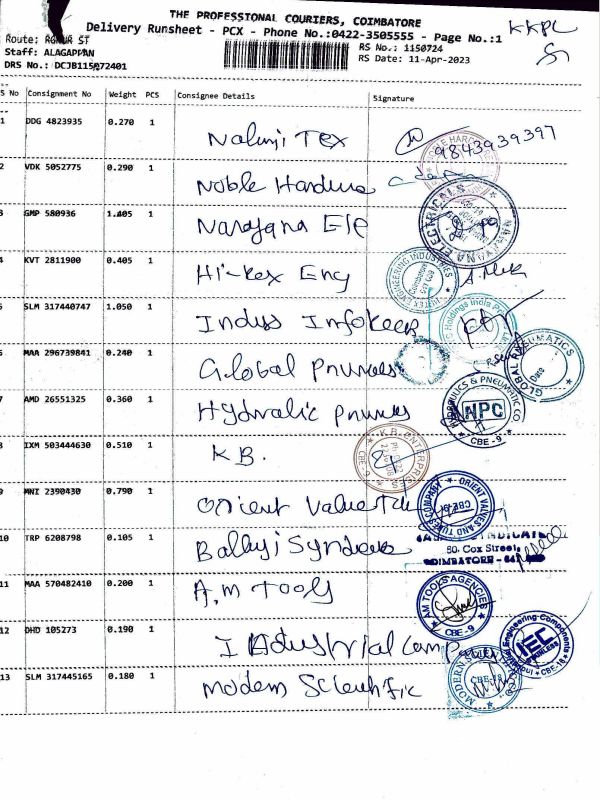 THE PROFESSIONAL COURIERS, COIMBATORE
Delivery Runsheet - PCX - Phone No.:0422-3505555 - Page No.:1
KKPL
Route: ST
RS No.: 1150724
Staff: ALAGAPPAN
RS Date: 11-Apr-2023
DRS No.: DCJB115072401
S No Consignment No Weight PCS Consignee Details Signature
1 DDG 4823935 0.270 1 Tex 9843939397
2 VDK 5052775 0.290 1 Noble
3 GMP 580936 1.405 1 Narayana Ele
4 KVT 2811900 0.405 1 Hi-Rex Eng
5 SLM 317440747 1.050 1 Indus Infokeers
6 MAA 296739841 0.240 1 Global
7 AMD 26551325 0.360 1 Hydralic
8 IXM 503444630 0.510 1 K B.
9 MNI 2390430 0.790 1 Orient Valve
10 TRP 6208798 0.105 1 Balaji
11 MAA 570482410 0.200 1 A.M Tools
12 DHD 105273 0.190 1 Industrial Comp
13 SLM 317445165 0.180 1 Modern Scientific
NARAYANA ELECTRICALS
ENGINEERING INDUSTRIES
Holdings India
GLOBAL PNEUMATICS
Date
HYDRAULICS & PNEUMATIC CO
HPC
CBE - 9
K.B. ENTERPRISES
CBE - 9
ORIENT VALVES AND TUBES COMPANY
CBE-9
50, Cox Street,
COIMBATORE - 641
AM TOOLS AGENCIES
CBE - 9
Engineering Components
IEC
CBE-18
MODERN
CBE-18